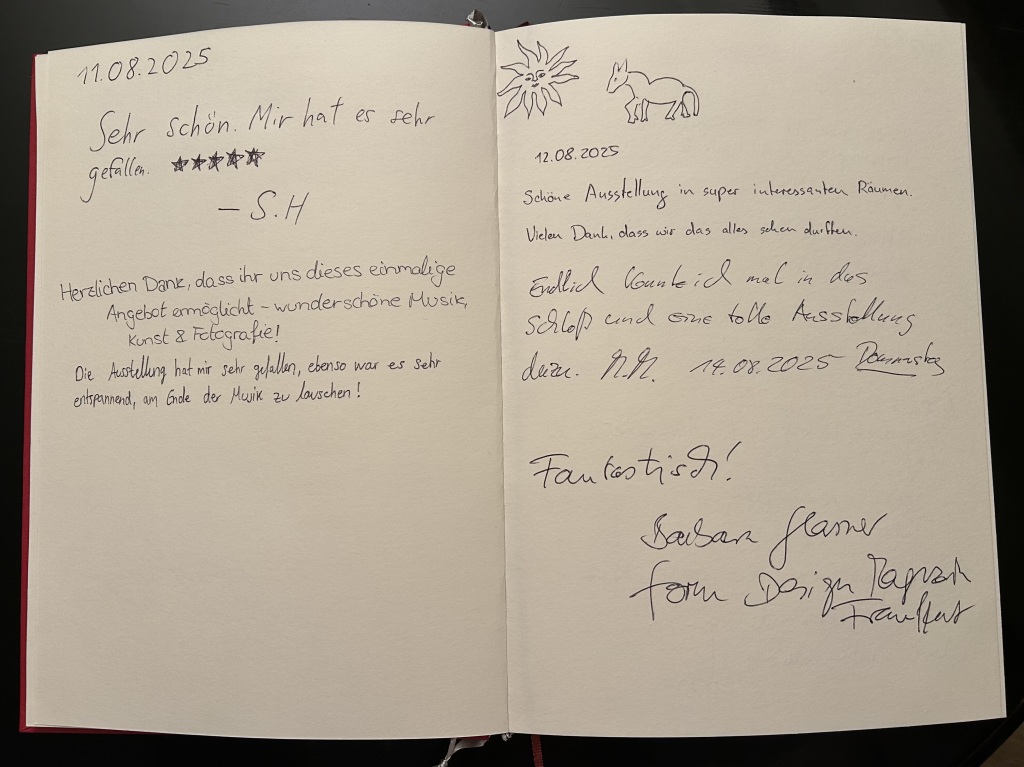 11.08.2025
Sehr schön. Mir hat es sehr
gefallen. ★★★★★
– S.H
Herzlichen Dank, dass ihr uns dieses einmalige
Angebot ermöglicht – wunderschöne Musik,
Kunst & Fotografie!
Die Ausstellung hat mir sehr gefallen, ebenso war es sehr
entspannend, am Ende der Musik zu lauschen!
12.08.2025
Schöne Ausstellung in super interessanten Räumen.
Vielen Dank, dass wir das alles sehen durften.
Endlich konnte ich mal in das
Schloß und eine tolle Ausstellung
dazu. N.N. 14.08.2025 Donnerstag
Fantastisch!
Barbara Glasner
form Design Magazin
Frankfurt